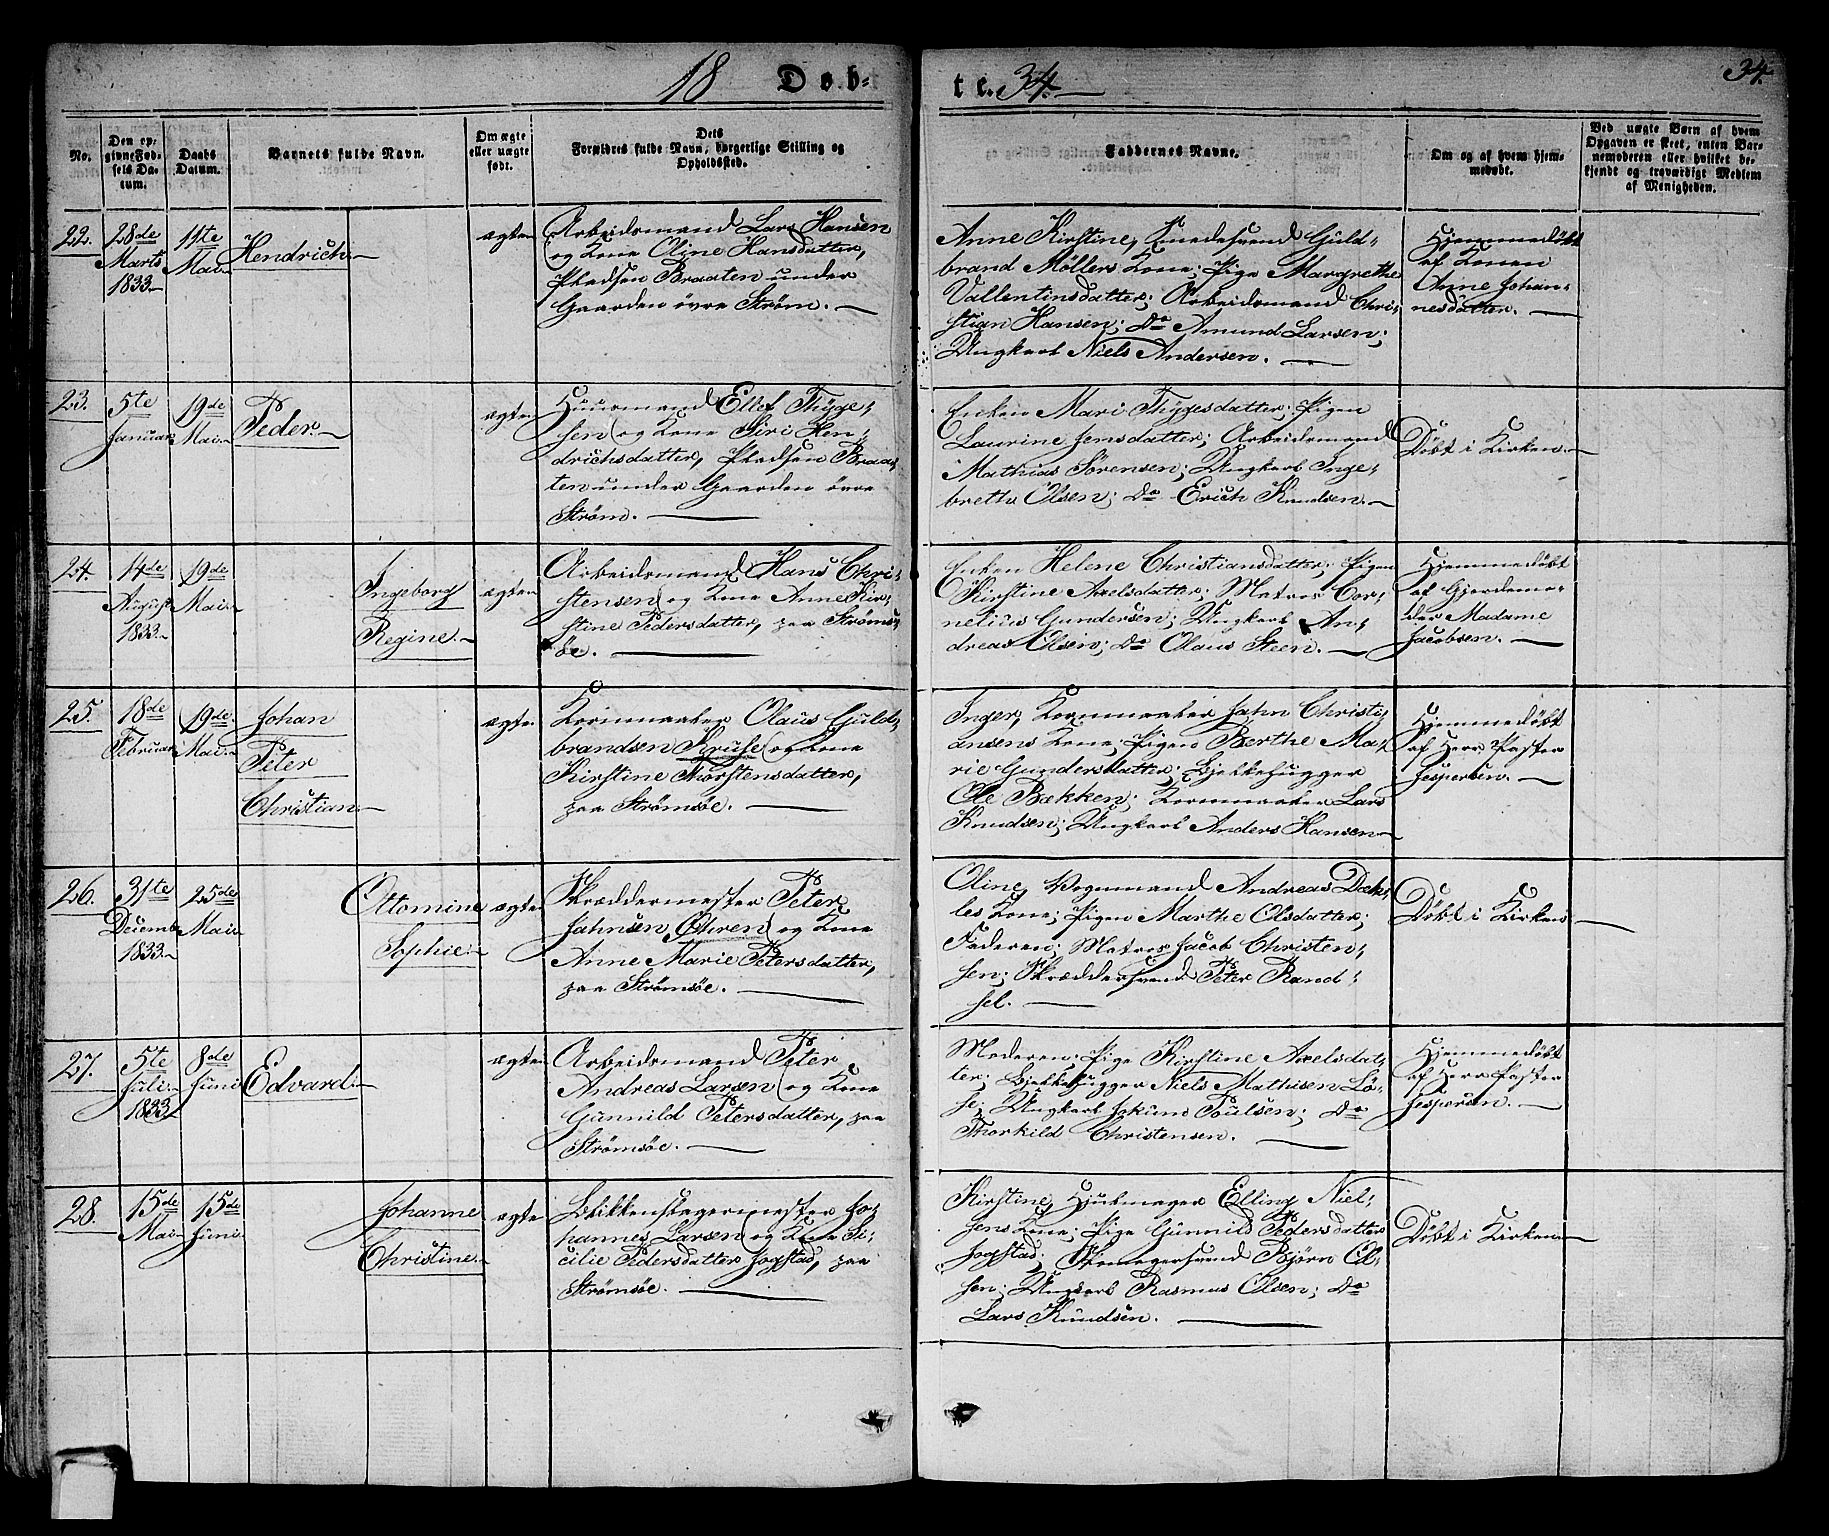 18 Døb-
te. 34.
34.
No.
Den op-
givne Fød-
sels Da-
tum.
Daabs
Datum.
Barnets fulde Navn.
Om ægte
eller uægte
født.
Dets
Forældres fulde Navn, borgerlige Stilling og
Opholdssted.
Faddernes Navne.
Om og af hvem hjem-
medøbt.
Ved uægte Børn af hvem
Opgaven er skeet, enten Bar-
nemoderen eller hvilket be-
kjendt og troværdigt Medlem
af Menigheden.
22.
28de
Marts
1833.
11te
Mai
Hendrich
ægte
Arbeidsmand Lars Hansen
og Kone Oline Hansdatter,
Pladsen Braaten under
Gaarden övre Ström.
Anne Kirstine, Smedesvend Guld-
brand Möllers Kone; Pige Margrethe
Vallentinsdatter; Arbeidsmand Chri-
stian Hansen; do Amund Larsen;
Ungkarl Niels Andersen.
Hjemmedöbt
af Konen
Anne Johan-
nesdatter.
23.
5te
Januar
19de
Mai
Peder.
ægte
Huusmand Ellef Thyge-
sen og Kone Siri Hen-
drichsdatter, Pladsen Braa-
ten under Gaarden övre
Ström.
Enken Mari Thygesdatter; Pigen
Laurine Jensdatter; Arbeidsmand
Mathias Sörensen; Ungkarl Inge-
breth Olsen; do Erich Knudsen.
Döbt i Kirken.
24.
14de
August
1833.
19de
Mai
Ingeborg
Regine.
ægte
Arbeidsmand Hans Chri-
stensen og Kone Anne Kir-
stine Pedersdatter, paa Ströms-
öe.
Enken Helene Christiansdatter; Pigen
Kirstine Axelsdatter; Matros Cor-
nelius Gundersen; Ungkarl An-
dreas Olsen; do Olaus Steen.
Hjemmedöbt
af Gjordemo-
der Madame
Jacobsen.
25.
18de
Februar
19de
Mai
Johan
Peter
Christian
ægte
Kornmaaler Olaus Guld-
brandsen Kruse og Kone
Kirstine Thorstensdatter,
paa Strömsöe.
Inger, Kornmaaler Jahn Christi-
ansens Kone; Pigen Berthe Ma-
rie Gundersdatter; Bjelkehugger
Ole Bækken; Kornmaaler Lars
Knudsen; Ungkarl Anders Hansen
Hjemmedöbt
af Herr Pastor
Jespersen.
26.
31te
Decemb.
1833.
25de
Mai
Ottomine
Sophie.
ægte
Skræddermester Peter
Jahnsen Öhren og Kone
Anne Marie Petersdatter,
paa Strömsöe.
Oline, Vognmand Andreas Dæh-
les Kone; Pigen Marthe Olsdatter;
Faderen; Matros Jacob Christen-
sen; Skræddersvend Peter Rand-
sel.
Döbt i Kirken
27.
5te
Juli
1833
8de
Juni
Edvard.
ægte
Arbeidsmand Peter
Andreas Larsen og Kone
Gunnild Petersdatter, paa
Strömsöe.
Moderen; Pige Kirstine Axelsdat-
ter; Bjelkehugger Niels Mathisen Lö-
se; Ungkarl Jokum Poulsen; do
Thorkild Christensen.
Hjemmedöbt
af Herr Pastor
Jespersen.
28.
15de
Mai
15de
Juni
Johanne
Christine.
ægte
Blikkenslagermester Jo-
hannes Larsen og Kone Si-
cilie Pedersdatter Jogstad, paa
Strömsöe.
Kirstine, Hjulmager Elling Niel-
sens Kone; Pige Gunnild Pedersdatter
Jogstad; Skomagersvend Björn Ol-
sen; Ungkarl Rasmus Olsen; do
Lars Knudsen.
Döbt i Kirken